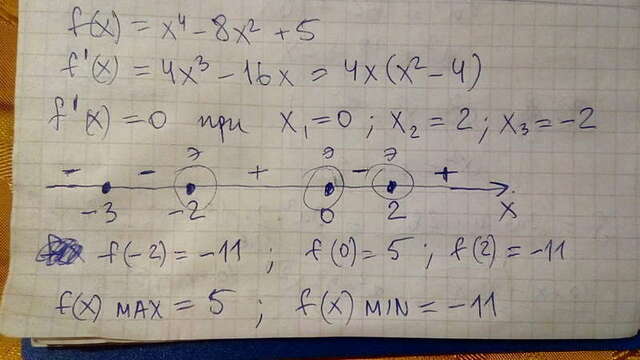 f(x) = x⁴ - 8x² + 5
f'(x) = 4x³ - 16x = 4x(x² - 4)
f'(x) = 0 при x₁ = 0 ; x₂ = 2 ; x₃ = -2
э э э
- - + - +
-3 -2 0 2 x
f(-2) = -11 ; f(0) = 5 ; f(2) = -11
f(x) MAX = 5 ; f(x) MIN = -11